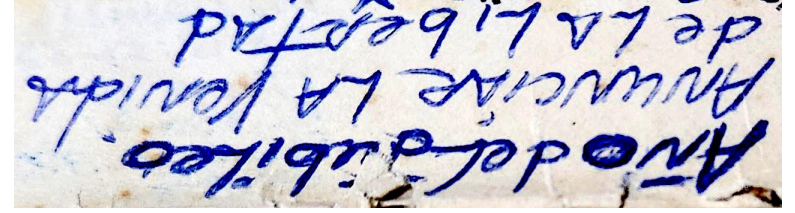 Año del Jubileo.
ANUNCIAR LA VenidA
de LA LibeRtAd